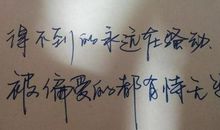 得不到的永远在骚动
被偏爱的都有恃无